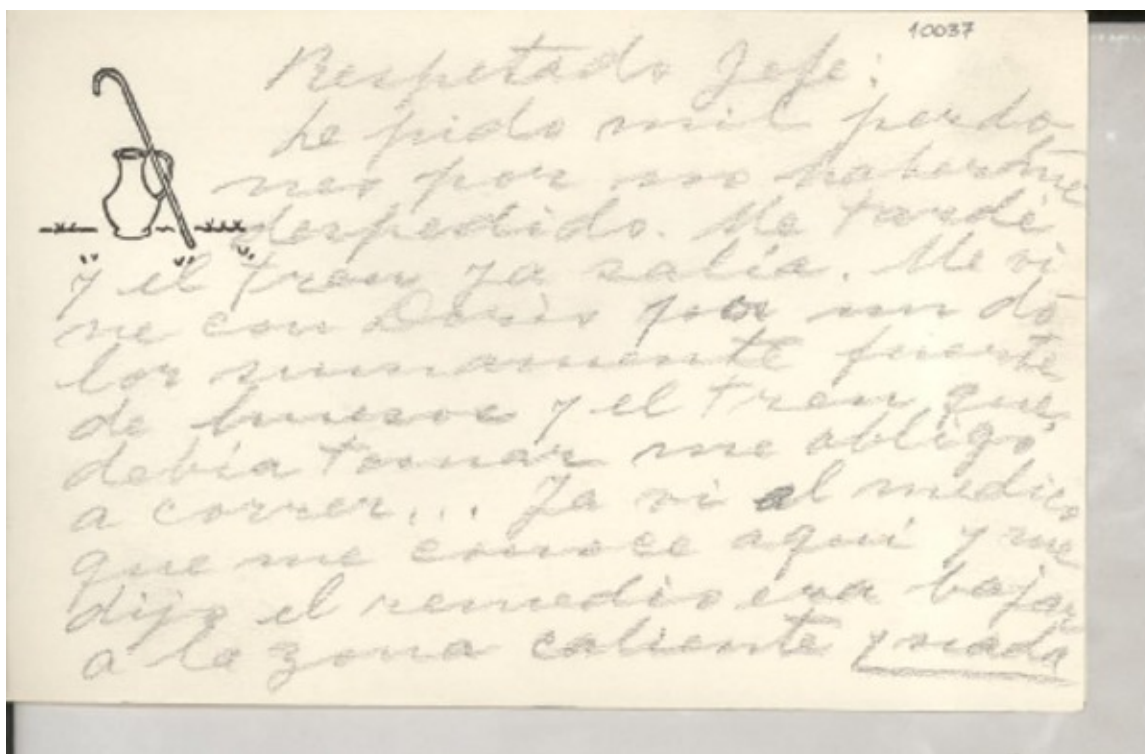 10037
Respetado Jefe:
Le pido mil perdo
nes por no haberme
despedido. Me tardé
y el tren ya salía. Me vi
ne con Doris por un do
lor sumamente fuerte
de huesos y el tren que
debía tomar me obligó
a correr... Ya vi al medico
que me conoce aquí y me
dijo el remedio era bajar
a la zona caliente y nada